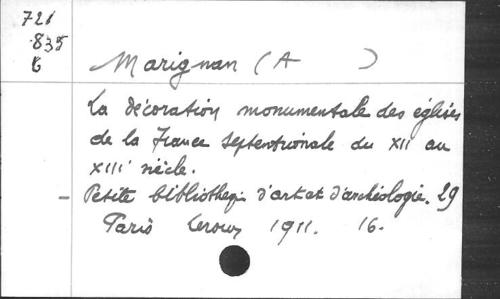 721
835
Marignan (A )
La décoration monumentale des églises
de la France septentrionale du XII au
XIII siècle.
Petite biblioth d'art et d'archéologie. 29
Paris Leroux 1911. 16.